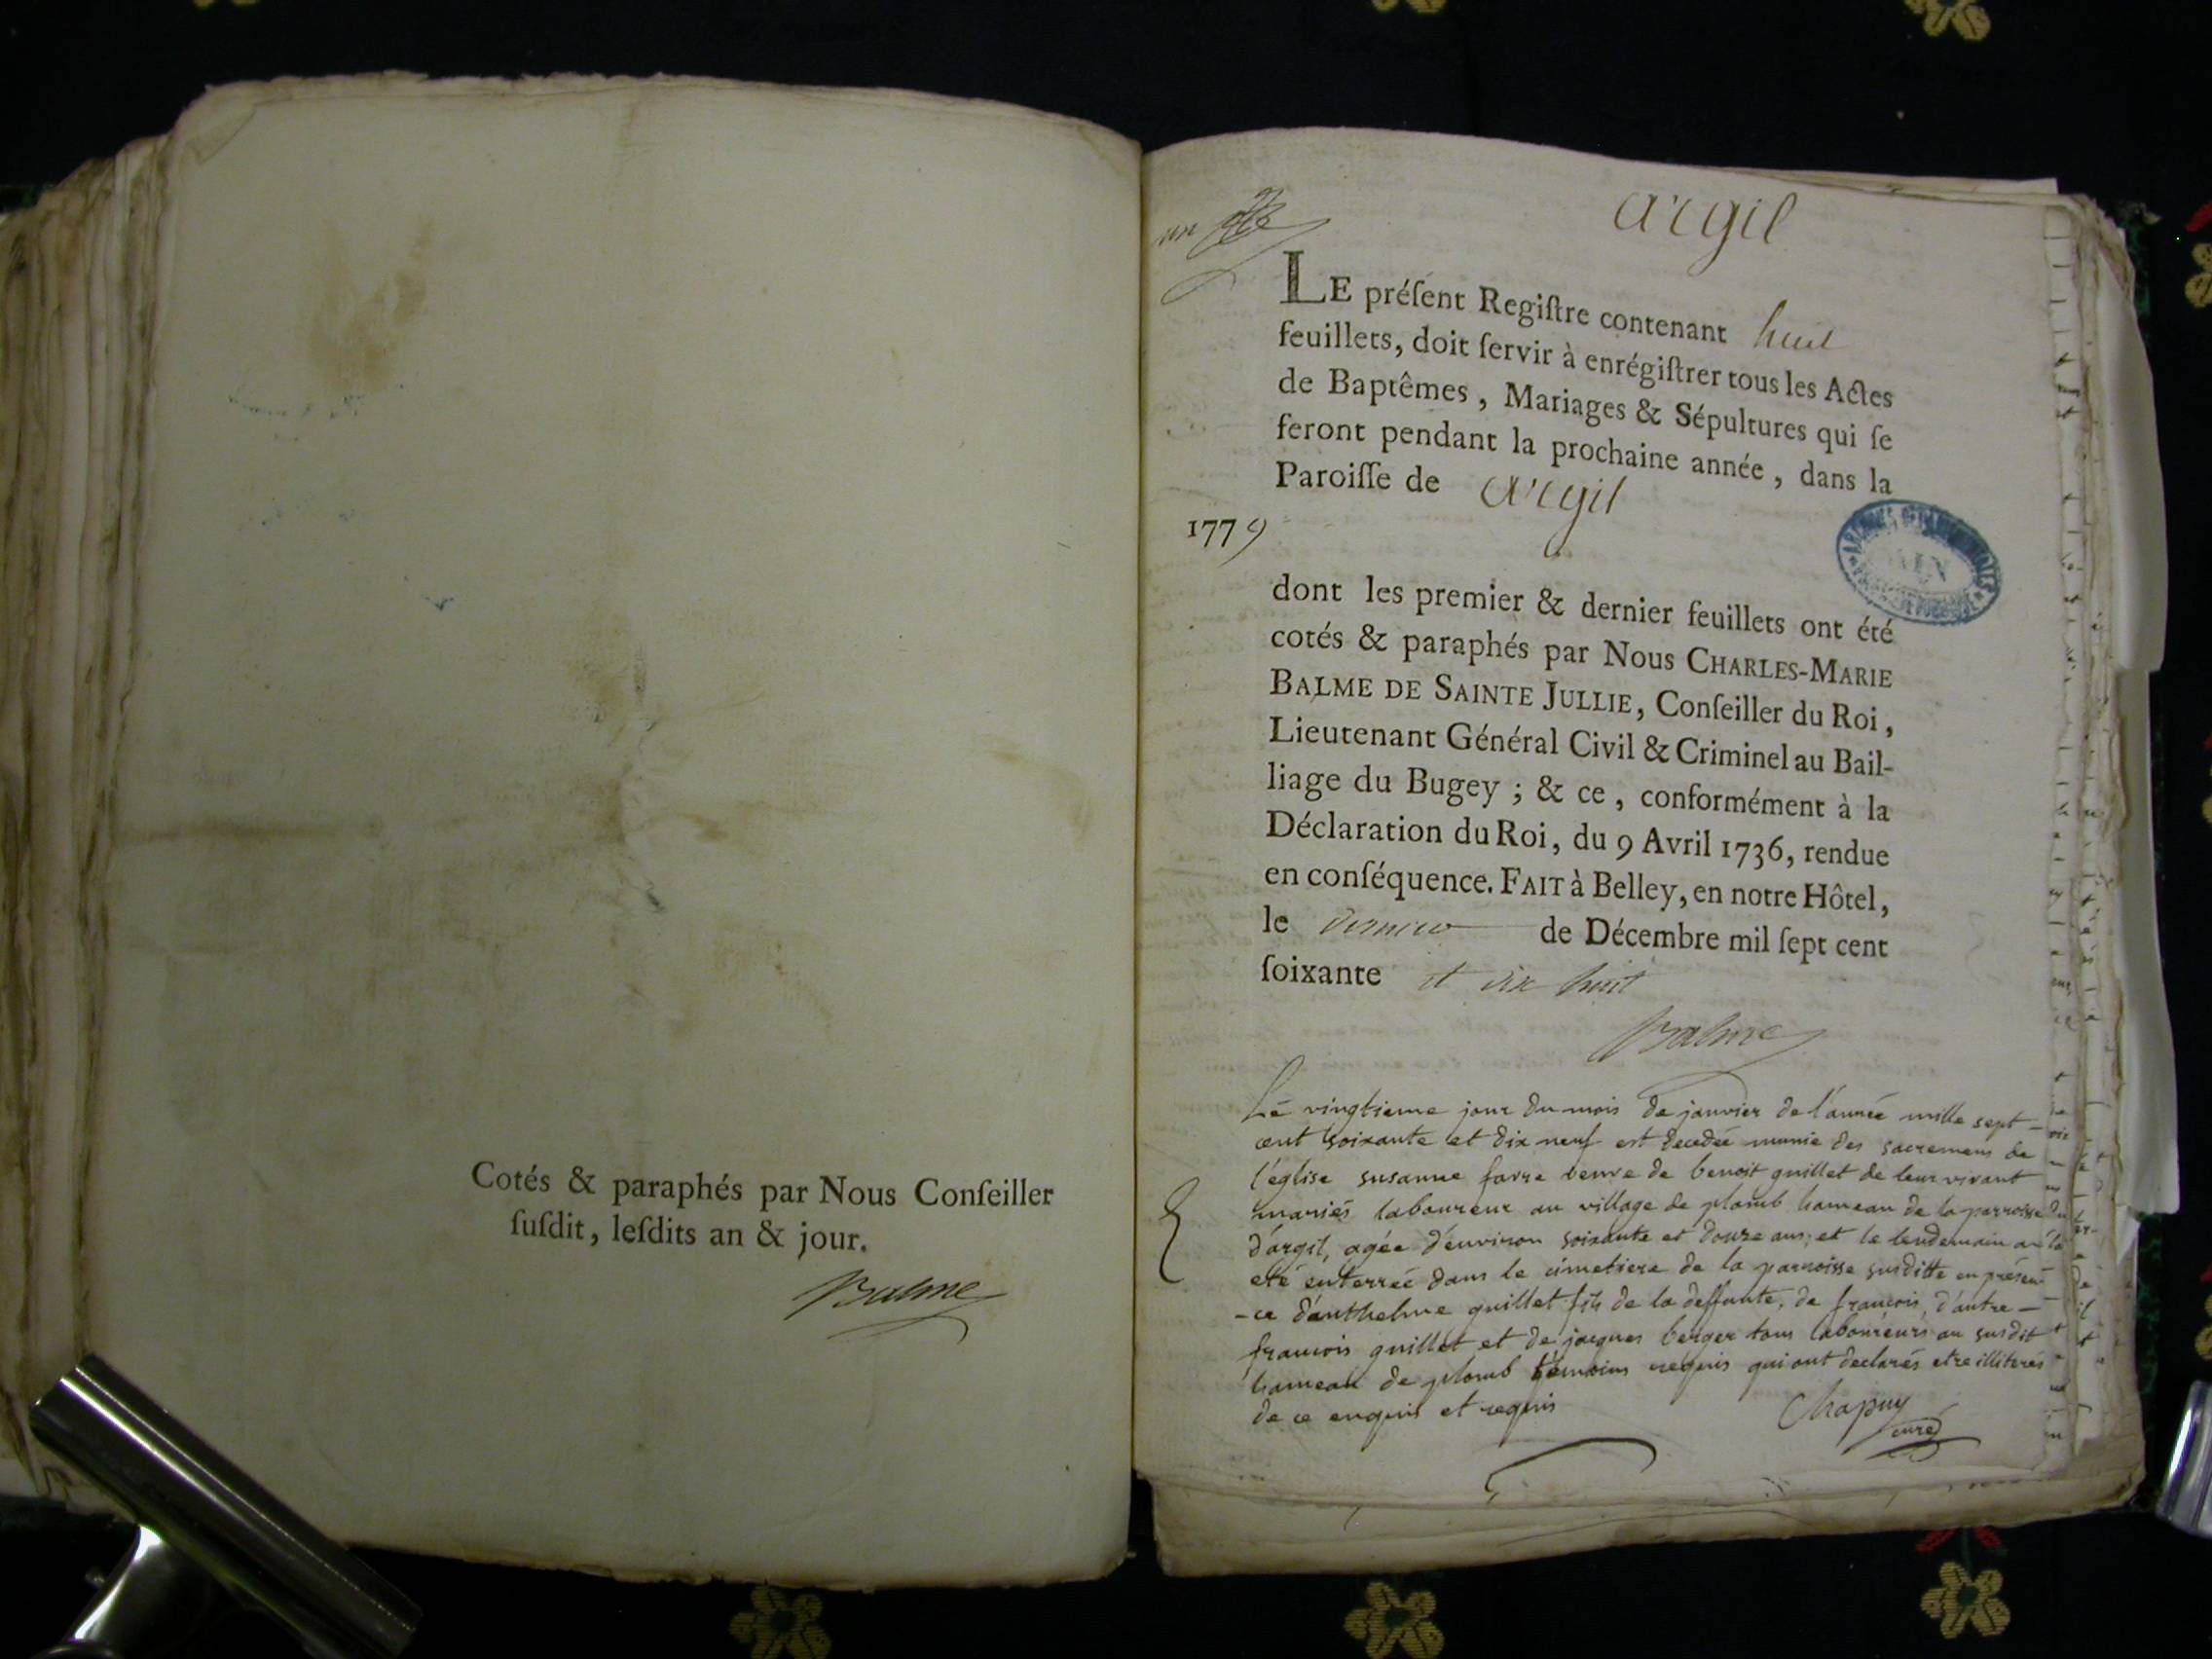 Cotés & paraphés par Nous Conſeiller
ſuſdit, leſdits an & jour.
Balme
un
argil
LE préſent Regiſtre contenant huit
feuillets, doit ſervir à enrégiſtrer tous les Actes
de Baptêmes, Mariages & Sépultures qui ſe
feront pendant la prochaine année, dans la
Paroiſſe de argil
1779
dont les premier & dernier feuillets ont été
cotés & paraphés par Nous CHARLES-MARIE
BALME DE SAINTE JULLIE, Conſeiller du Roi,
Lieutenant Général Civil & Criminel au Bail-
liage du Bugey; & ce, conformément à la
Déclaration du Roi, du 9 Avril 1736, rendue
en conſéquence. FAIT à Belley, en notre Hôtel,
le dernier de Décembre mil ſept cent
ſoixante et dix huit
Balme
Le vingtieme jour du mois de janvier de l'année mille sept
cent soixante et dix neuf est decedée munie des sacremens de
l'église susanne favre veuve de benoit guillet de leur vivant
mariés laboureur au village de plomb hameau de la parroisse
d'argil, agée d'environ soixante et douze ans, et le lendemain a
eté enterreé dans le cimetiere de la parroisse susditte en présen
-ce d'anthelme guillet fils de la deffunte, de francois, d'autre
francois guillet et de jacques berger tous laboureurs au susdit
hameau de plomb témoins requis qui ont declarés etre illiterés
de ce enquis et requis
Chapuy
curé